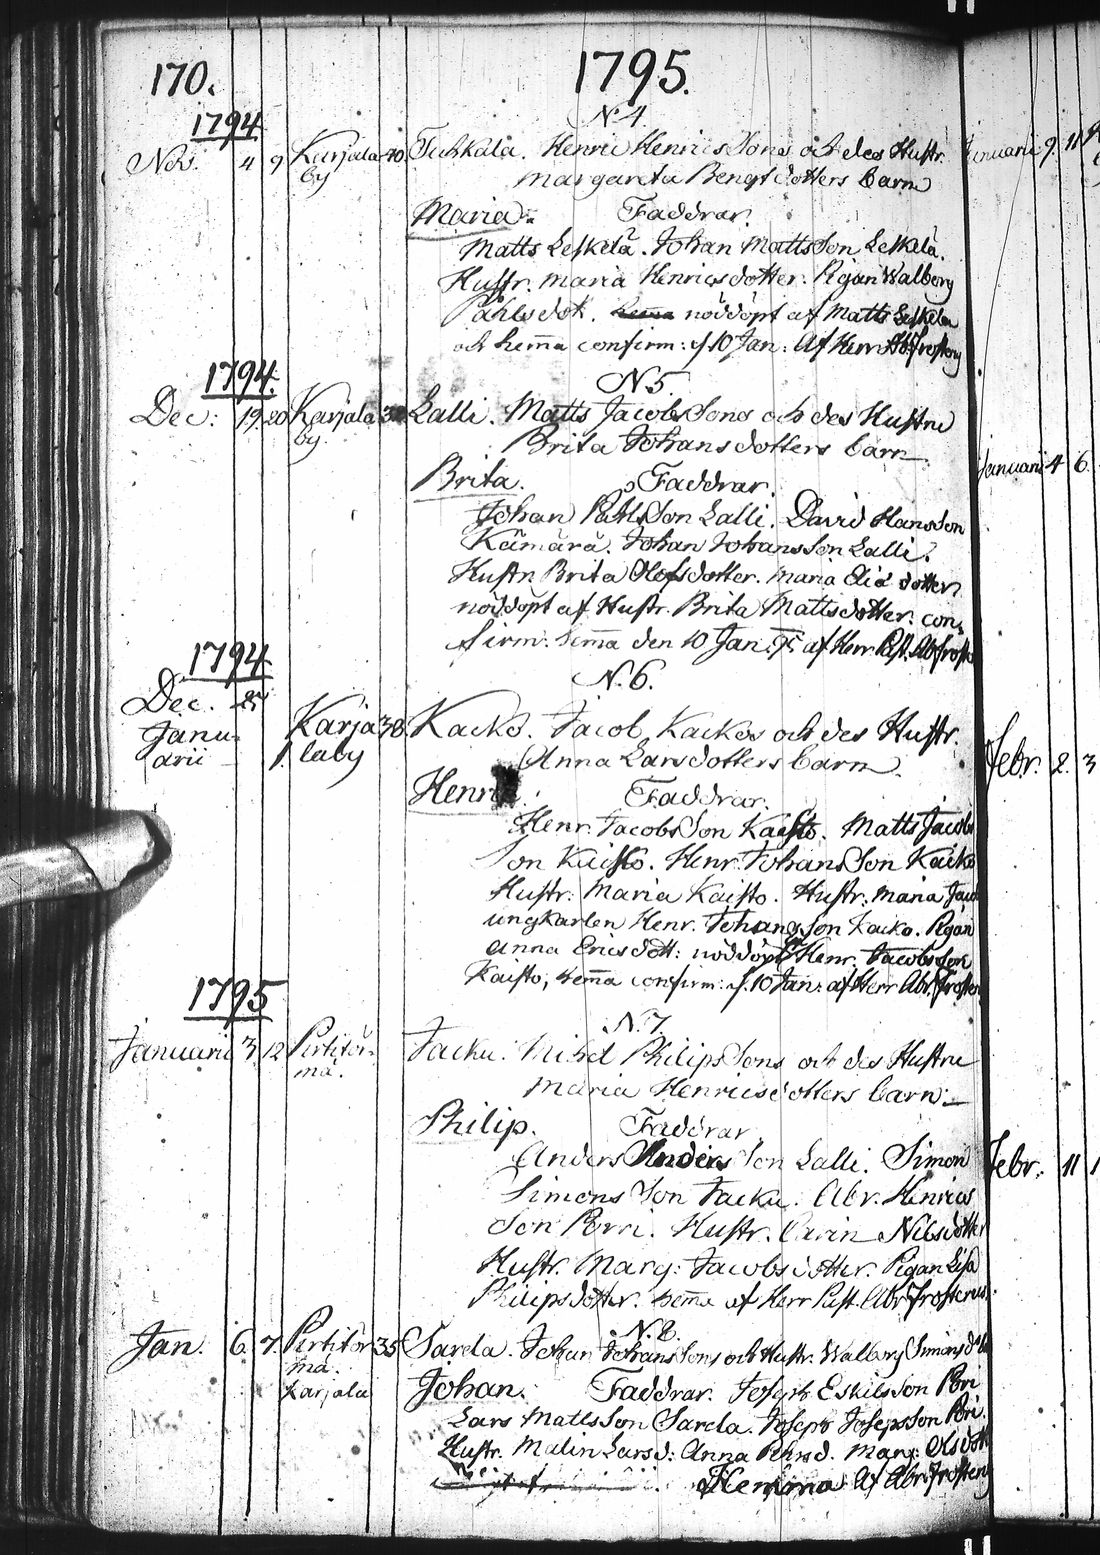 170.
1795.
1794
N. 4.
Nov. 4 9 Karjala by 40. Tuhkala. Henric Henrics Sons och des Hustr.
Margareta Bengtsdotters barn
Maria. Faddrar.
Matts Leskelä. Johan MattsSon Leskelä.
Hustr. Maria Henricsdotter. Pigan Walborg
Påhlsdot. nöddöpt af Matts Leskelä
och hem̄a confirm: d. 10 Jan: Af Herr Ab. Frosterg
1794.
N. 5.
Dec: 19. 20 Karjala by Lalli. Matts Jacobs Sons och des Hustru
Brita Johansdotters barn
Brita. Faddrar.
Johan PåhlsSon Lalli. David Hansson
Kämärä. Johan JohansSon Lalli.
Hustru Brita Olofsdotter. Maria Eliædotter
nöddöpt af Hustr. Brita Mattsdotter. con-
firm: hem̄a den 10 Jan. 95 af Herr Past. Ab Froste
1794
N. 6.
Dec. 27
Januarii 1. Karjalaby 38. Kacko. Jacob Kackos och des Hustr.
Anna Larsdotters barn.
Henric. Faddrar.
Henr. JacobsSon Kaisto. Matts Jacobs
Son Kaisto. Henr. JohansSon Kacko
Hustr: Maria Kaisto. Hustr: Maria Jaco
ungkarlen Henr. JohansSon Kacko. Pigan
Anna Ericsdott: nöddöpt af Henr. JacobsSon
Kaisto, hem̄a confirm: d. 10 Jan: af Herr Abr. Froster
1795
N. 7.
Januarii 3 12 Pirtitörmä. Jacku. Michel PhilipsSons och des Hustru
Maria Henricsdotters barn.
Philip. Faddrar
Anders Anders Son Lalli. Simon
Simons Son Jacku. Abr. Henrics
Son Porri. Hustr. Carin Nilsdotter
Hustr. Marg: Jacobsdotter. Pigan Lisa
Philipsdotter. hem̄a af Herr Past. Abr Frosterus.
N. 8.
Jan. 6. 7. Pirtitörmä. Karjala 35 Sarela. Johan JohansSons och Hustr. Walborg Simonsd
Johan. Faddrar. Joseph EskilsSon Pori
Lars MattsSon Sarela. Joseph JosepsSon Pori.
Hustr. Malin Larsd: Anna Påhlsd. Marg: Olsdott
Hemma Af Abr. Frosterg
Januarii 9. 11
Januarii 4 6.
Febr. 2. 3
Febr. 11